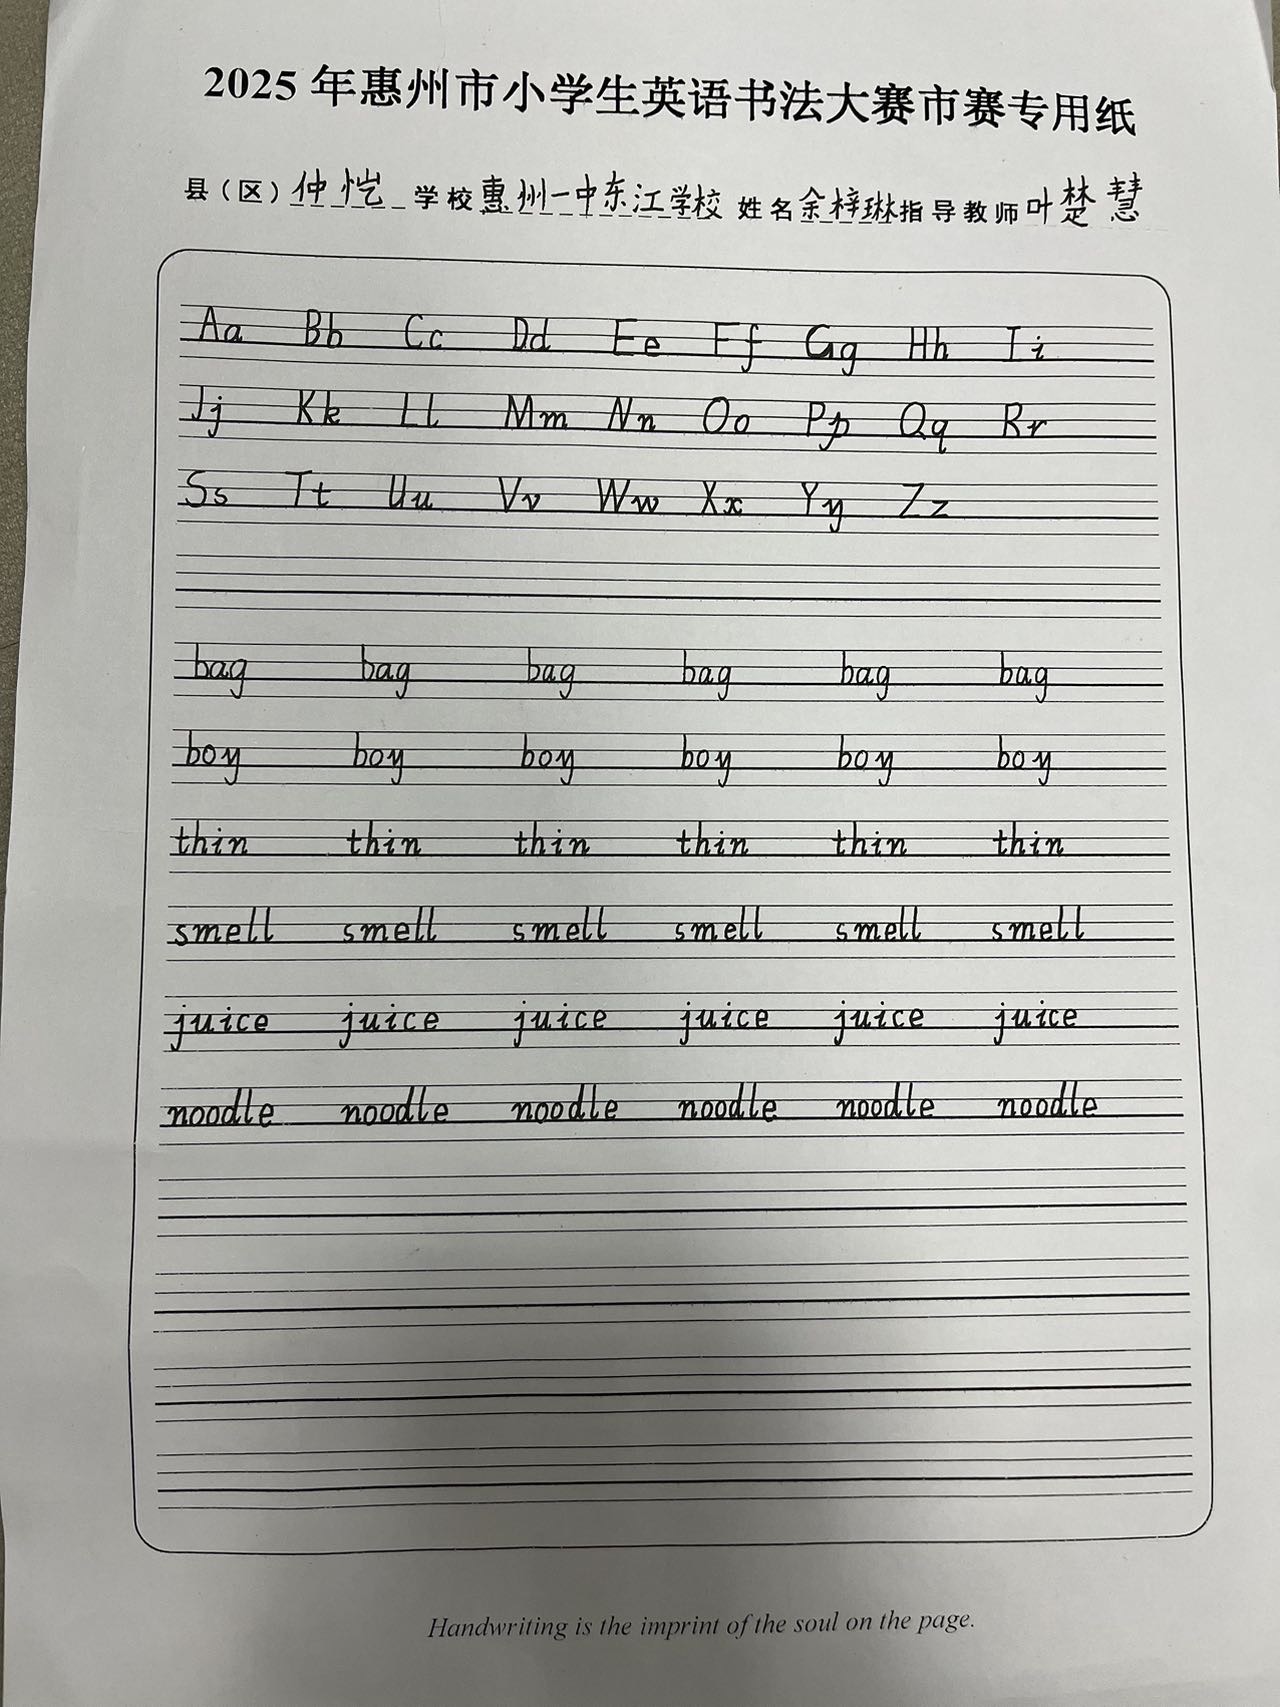 2025 年惠州市小学生英语书法大赛市赛专用纸
县（区）仲恺 学校惠州一中东江学校 姓名余梓琳指导教师叶楚慧
Aa Bb Cc Dd Ee Ff Gg Hh Ii
Jj Kk Ll Mm Nn Oo Pp Qq Rr
Ss Tt Uu Vv Ww Xx Yy Zz
bag bag bag bag bag bag
boy boy boy boy boy boy
thin thin thin thin thin thin
smell smell smell smell smell smell
juice juice juice juice juice juice
noodle noodle noodle noodle noodle noodle
Handwriting is the imprint of the soul on the page.